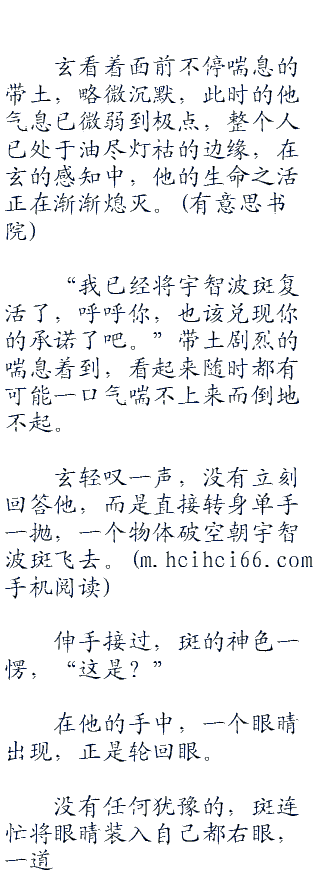 玄看着面前不停喘息的
带土，略微沉默，此时的他
气息已微弱到极点，整个人
已处于油尽灯祜的边缘，在
玄的感知中，他的生命之活
正在渐渐熄灭。(有意思书
院)
“我已经将宇智波斑复
活了，呼呼你，也该兑现你
的承诺了吧。”带土剧烈的
喘息着到，看起来随时都有
可能一口气喘不上来而倒地
不起。
玄轻叹一声，没有立刻
回答他，而是直接转身单手
一抛，一个物体破空朝宇智
波斑飞去。(m.hcihci66.com
手机阅读)
伸手接过，斑的神色一
愣，“这是？”
在他的手中，一个眼睛
出现，正是轮回眼。
没有任何犹豫的，斑连
忙将眼睛装入自己都右眼，
一道